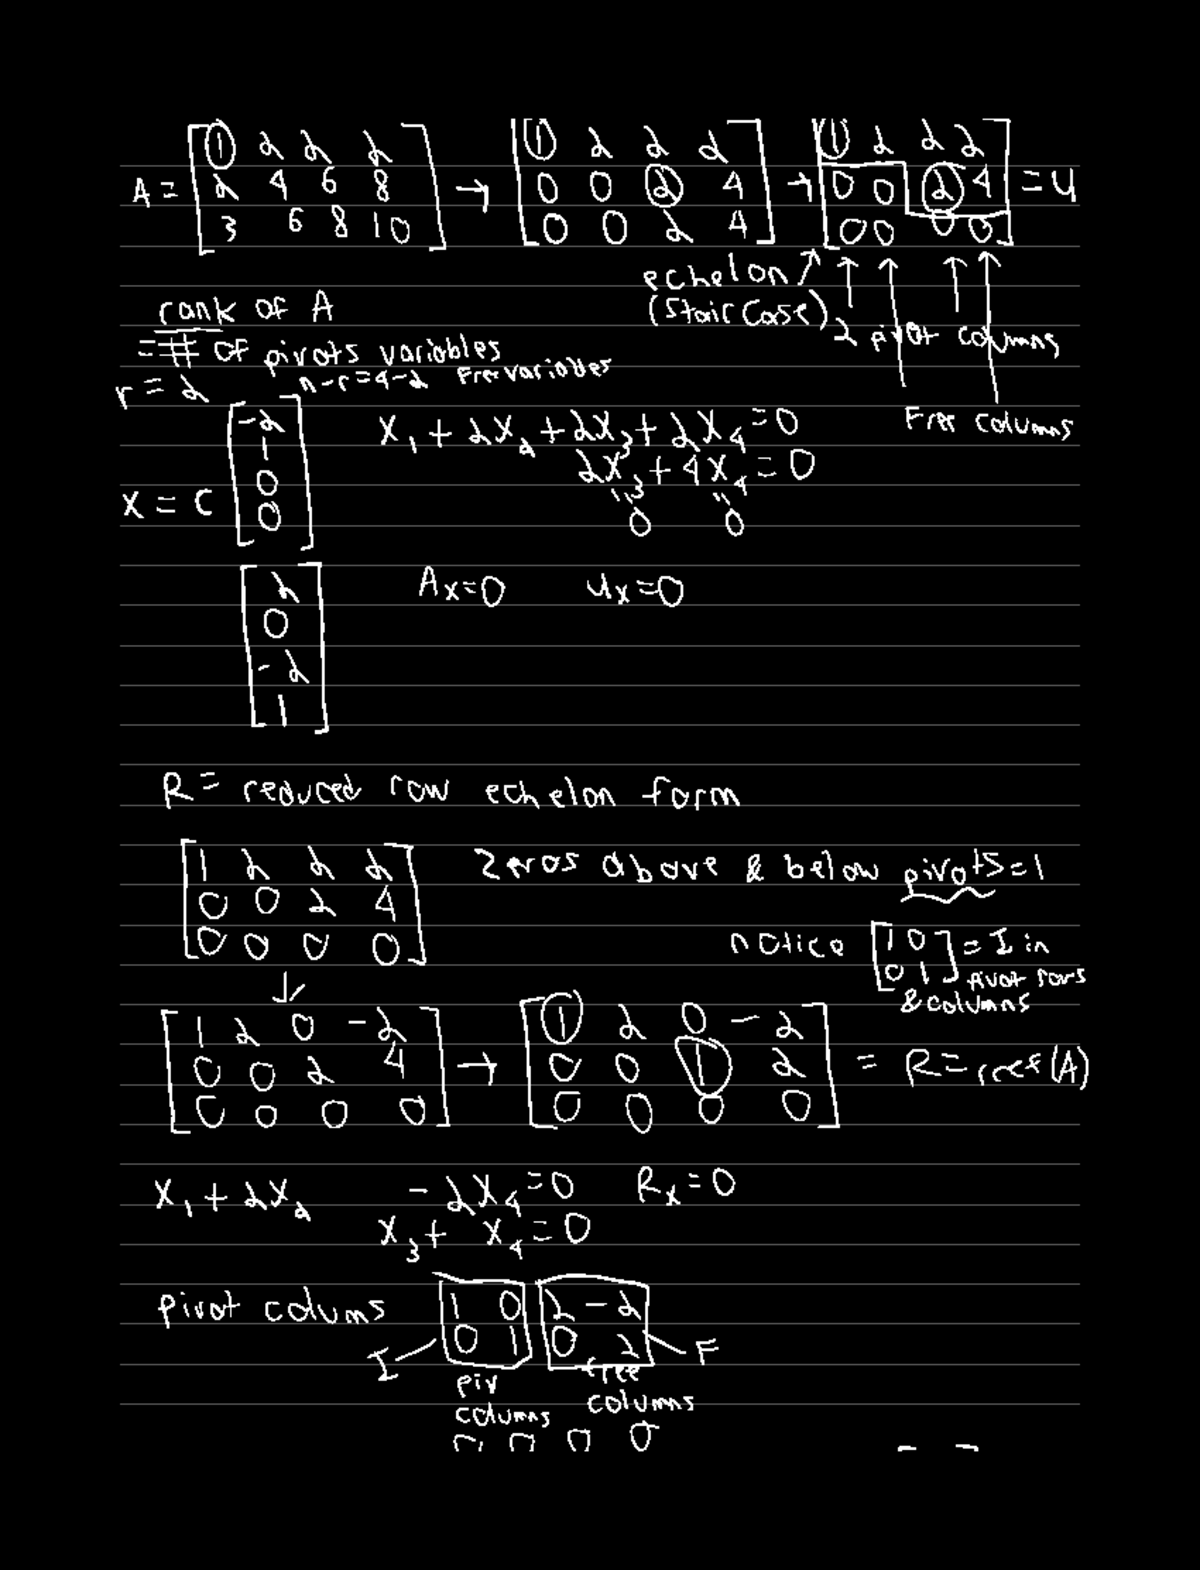 A = [① 2 2 2; 2 4 6 8; 3 6 8 10] → [① 2 2 2; 0 0 ② 4; 0 0 2 4] → [① 2 2 2; 0 0 ② 4; 0 0 0 0] = U
echelon ↑ ↑ ↑ ↑ ↑
(Stair Case) 2 pivot columns
rank of A
= # of pivots variables
r = 2 n-r = 4-2 Free variables
Free columns
x = c [-2; 1; 0; 0]
x₁ + 2x₂ + 2x₃ + 2x₄ = 0
2x₃ + 4x₄ = 0
" "
0 0
[2; 0; -2; 1]
Ax=0 Ux=0
R = reduced row echelon form
[1 2 2 2; 0 0 2 4; 0 0 0 0]
Zeros above & below pivots = 1
notice [1 0; 0 1] = I in
pivot rows
& columns
↓
[1 2 0 -2; 0 0 2 4; 0 0 0 0] → [① 2 0 -2; 0 0 ① 2; 0 0 0 0] = R = rref(A)
x₁ + 2x₂ - 2x₄ = 0 Rx = 0
x₃ + x₄ = 0
pivot colums [1 0; 0 1] [2 -2; 0 2]
I F
piv free
columns columns
0 0 0 0